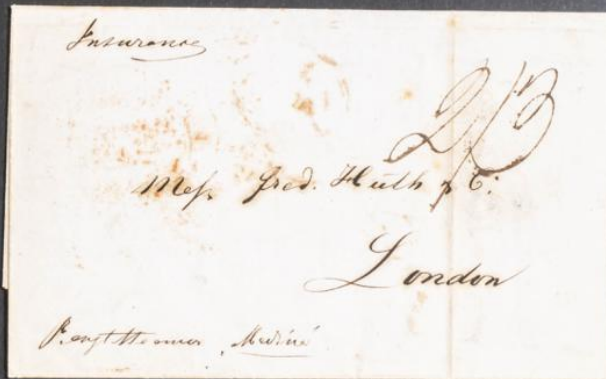 Insurance
2/3
Mess Fred. Huth & Co:
London
P. engl Steamer Medina